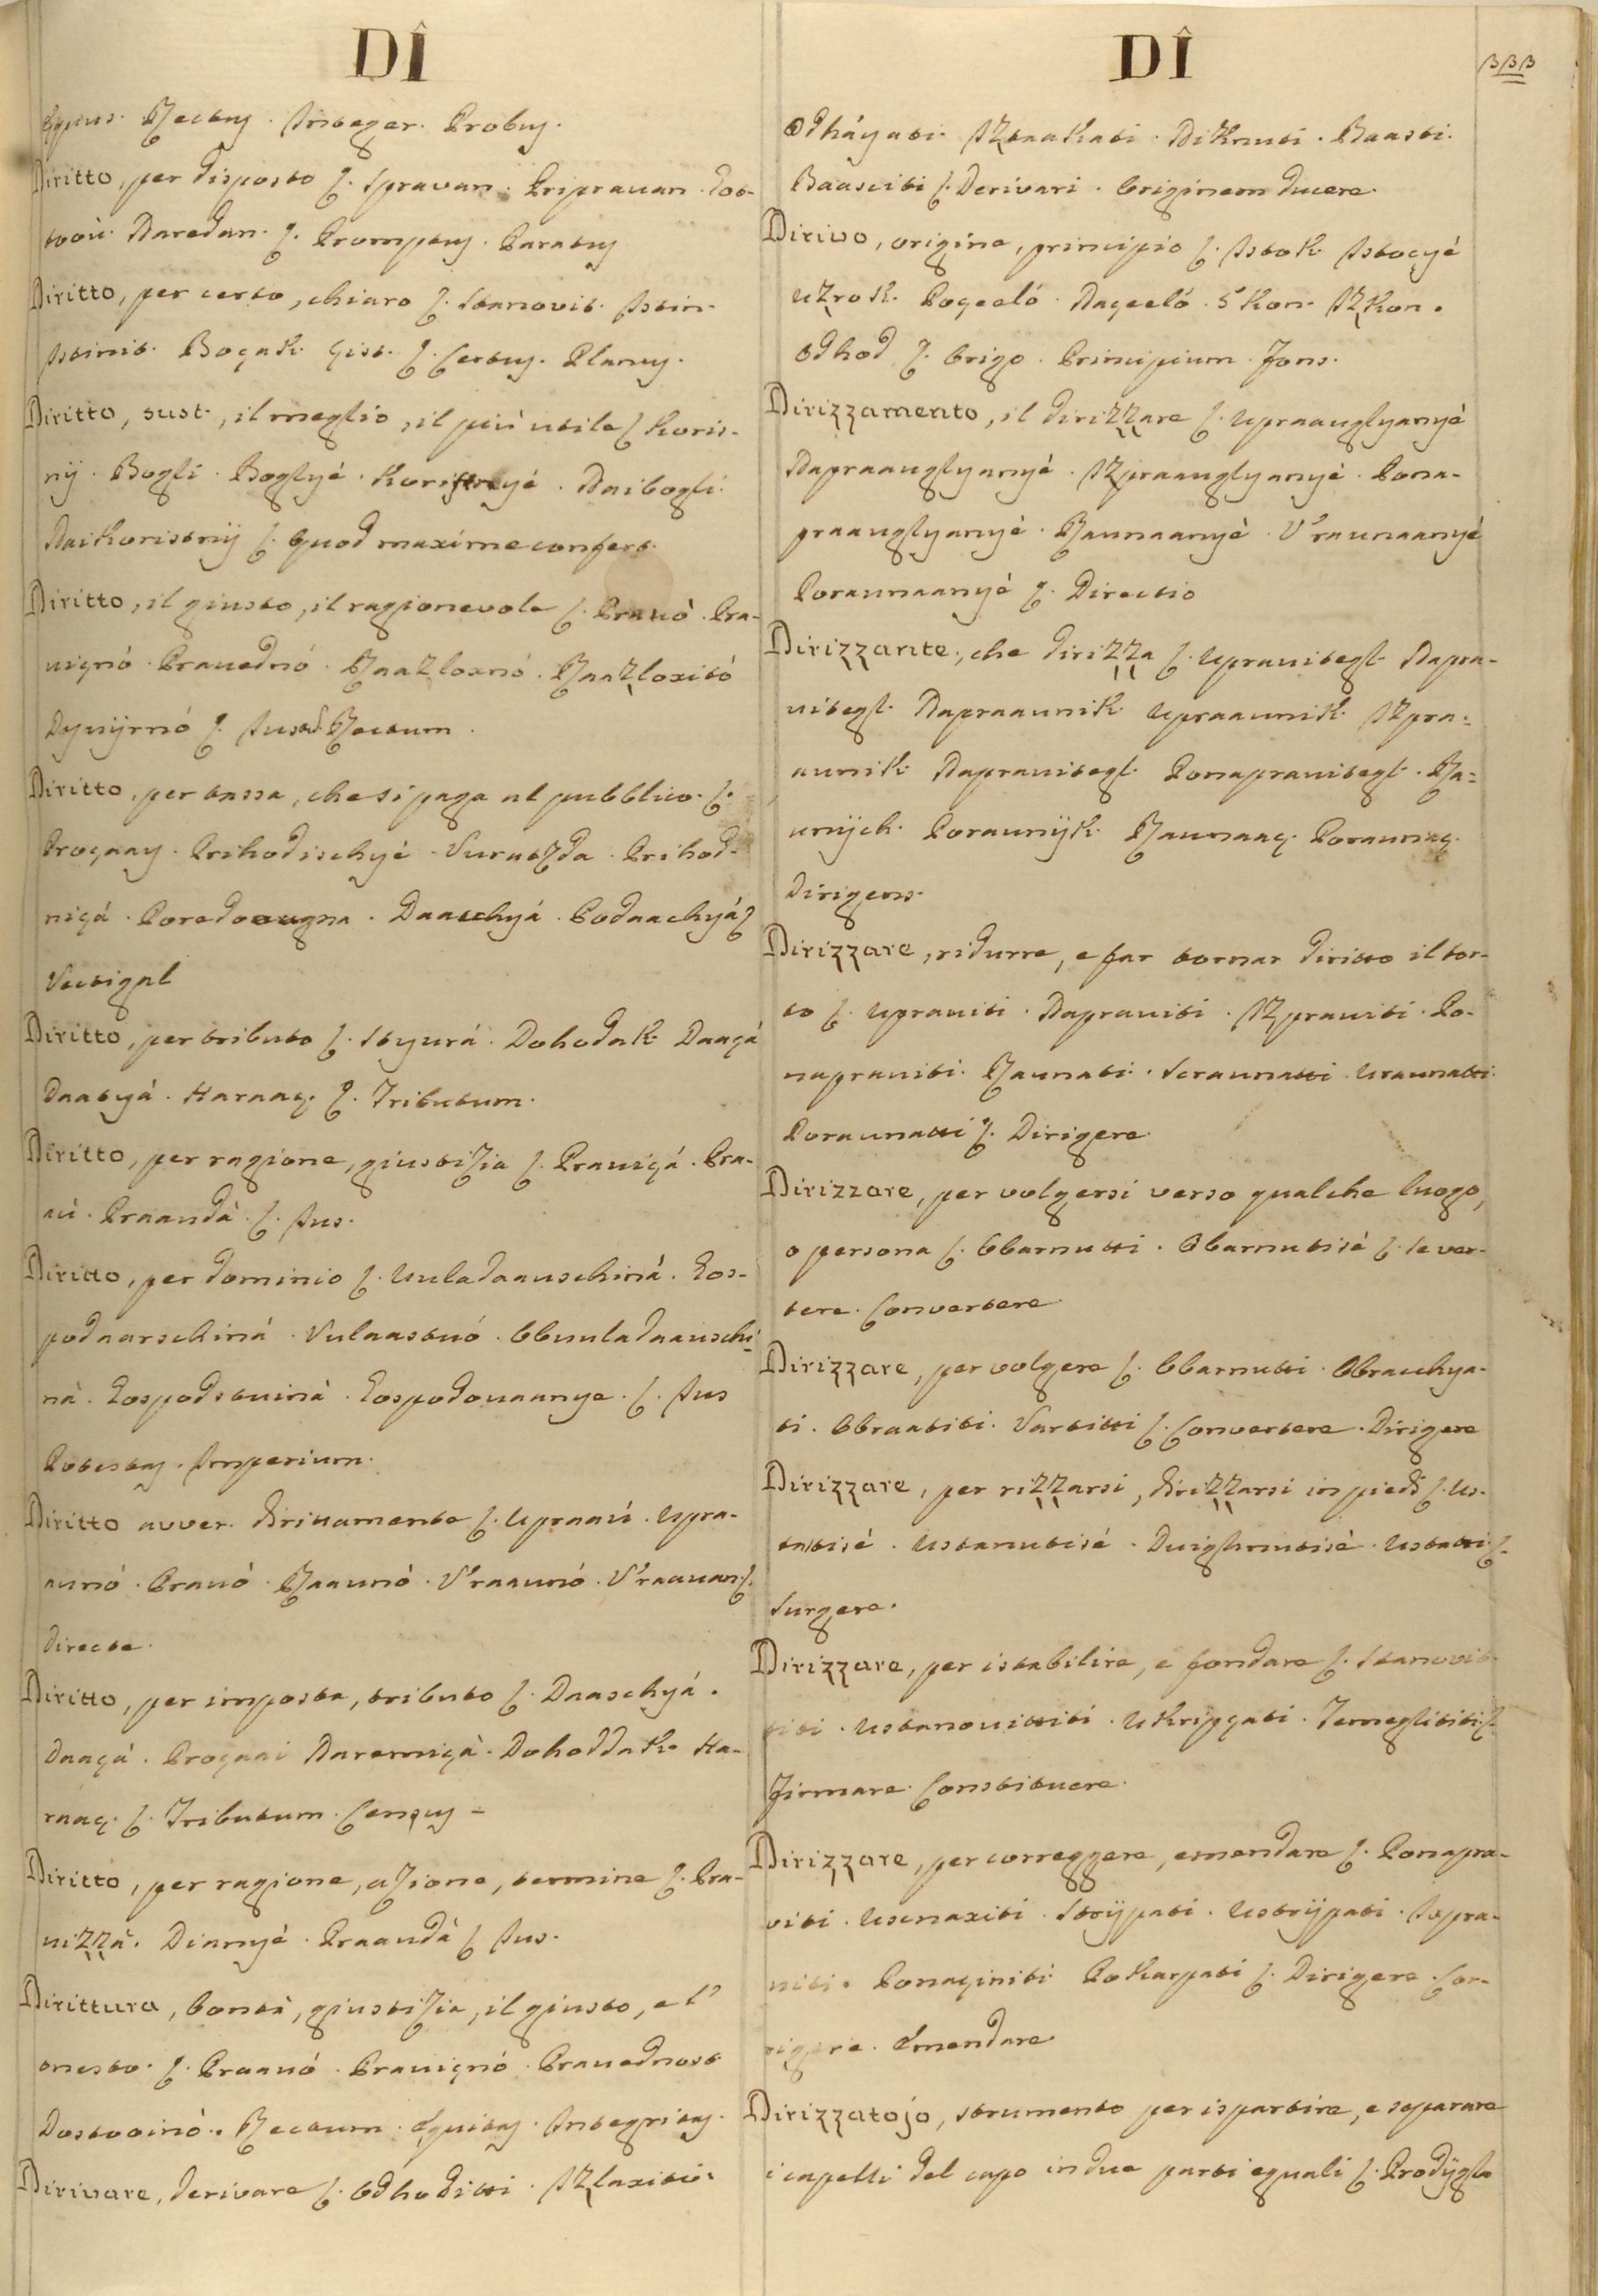 DÎ
Equus. Rectus. Integer. Probus.
Diritto, per disposto ſ. Spravan. Pripravan. Got-
tovù. Naredan. ſ. Promptus. Paratus
Diritto, per certo, chiaro ſ. Stanovit. Istin.
Istinit. Boçak. Çist. ſ. Certus. Planus.
Diritto, sust., il meglio, il più utile ſ. Koris-
nÿ. Bogli. Boglyé. Koristnyé. Naibogli.
Naikoristnÿ ſ. Quod maxime confert.
Diritto, il giusto, il ragionevole ſ. Pravò. Pra-
viçnó. Pravednó. Raazloxnó. Raazloxitó
ſ. Jus Rectum.
Diritto, per tassa, che si paga al pubblico. ſ.
Proçaay. Prihodischyé. Prihod-
niçá. Daaschyá. Podaachyá ſ.
Vectigal
Diritto, per tributo ſ. Styurá. Dohodak. Daaçá
Daatyá. Haraaç. ſ. Tributum.
Diritto, per ragione, giustizia ſ. Praviçá. Pra-
aù. Praavdà. ſ. Jus.
Diritto, per dominio ſ. Uuladaauschinà. Gos-
podaarschiná. Vulaastuó. Obuuladaauschi-
nà. Gospodstuinà. Gospodouaanye. ſ. Jus
Potestas. Imperium.
Diritto avver. dirittamente ſ. Upraaù. Upra-
aunó. Prauò. Raaunò. V'raaunó. V'raauan ſ.
Directe.
Diritto, per imposta, tributo ſ. Daaschyá.
Daaçà. Proçaai Naremiçà. Dohoddak. Ha-
raaç. ſ. Tributum. Census =
Diritto, per ragione, azione, termine ſ. Pra-
vizzà. Dianyé. Praavdà ſ. Jus.
Dirittura, bontà, giustizia, il giusto, e l'
onesto. ſ. Praavó. Praviçnó. Pravednost
Dostooinò. Rectum. Equitas. Integritas.
Dirivare, derivare ſ. Odhoditti. Izlaxitti.
DÎ
333
Odháyati. Iztaakati. Niknuti. Raasti.
Raasciti ſ. Derivari. Originem ducere.
Dirivo, origine, principio ſ. Istok Istoçyé
Uzrok. Poçeeló. Naçeeló. S'kon. Izkon.
Odhod ſ. Origo. Principium. Fons.
Dirizzamento, il dirizzare ſ. Upraavglyanyé
Napraavglyanyé. Izpraavglyanyé. Pona-
praavglyanyé. Raunaanyé. V'raunaanyé
Poraunaanyé ſ. Directio
Dirizzante, che dirizza ſ. Upravitegl. Napra-
vitegl. Napraavnik. Upraavnik. Izpra-
avnik. Napravitegl. Ponapravitegl. Ra-
unÿch. Poraunÿk. Raunaaç. Poraunaç.
Dirigens.
Dirizzare, ridurre, e far tornar diritto il tor-
to ſ. Upraviti. Napraviti. Izpraviti. Po-
napraviti. Raunati. Sraunatti. Uraunatti.
Poraunatti ſ. Dirigere.
Dirizzare, per volgersi verso qualche luogo,
o persona ſ. Obarnutti. Obarnutisè ſ. Se ver-
tere. Convertere.
Dirizzare, per volgere ſ. Obarnutti. Obracchya-
ti. Obraatiti. Vartitti ſ. Convertere. Dirigere
Dirizzare, per rizzarsi, dirizzarsi in piedi ſ. Us-
tatisé. Ustanutisé. Duighnutisè. Ustatti ſ.
Surgere.
Dirizzare, per istabilire, e fondare ſ. Stanovit-
titi. Ustanovittiti. Ukripçati. Temeglititi ſ.
Firmare. Constituere.
Dirizzare, per correggere, emendare ſ. Ponapra-
viti. Usçnaxiti. Strÿpati. Ustrÿpati. Ispra-
viti. Ponaçiniti Pokarpati ſ. Dirigere. Cor-
rigere. Emendare.
Dirizzatojo, strumento per ispartire, e separare
i capelli del capo in due parti eguali ſ. Prodÿglo